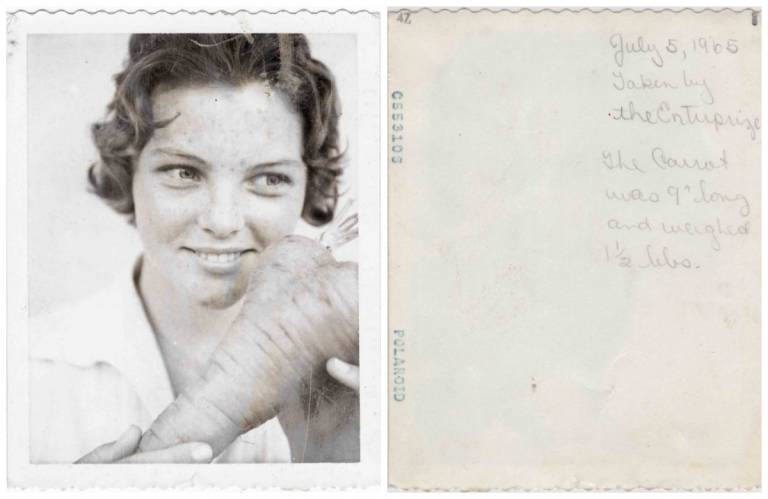 47
G553109
POLAROID
July 5, 1965
Taken by
the Enterprize
The Carrot
was 9" long
and weighed
1½ lbs.